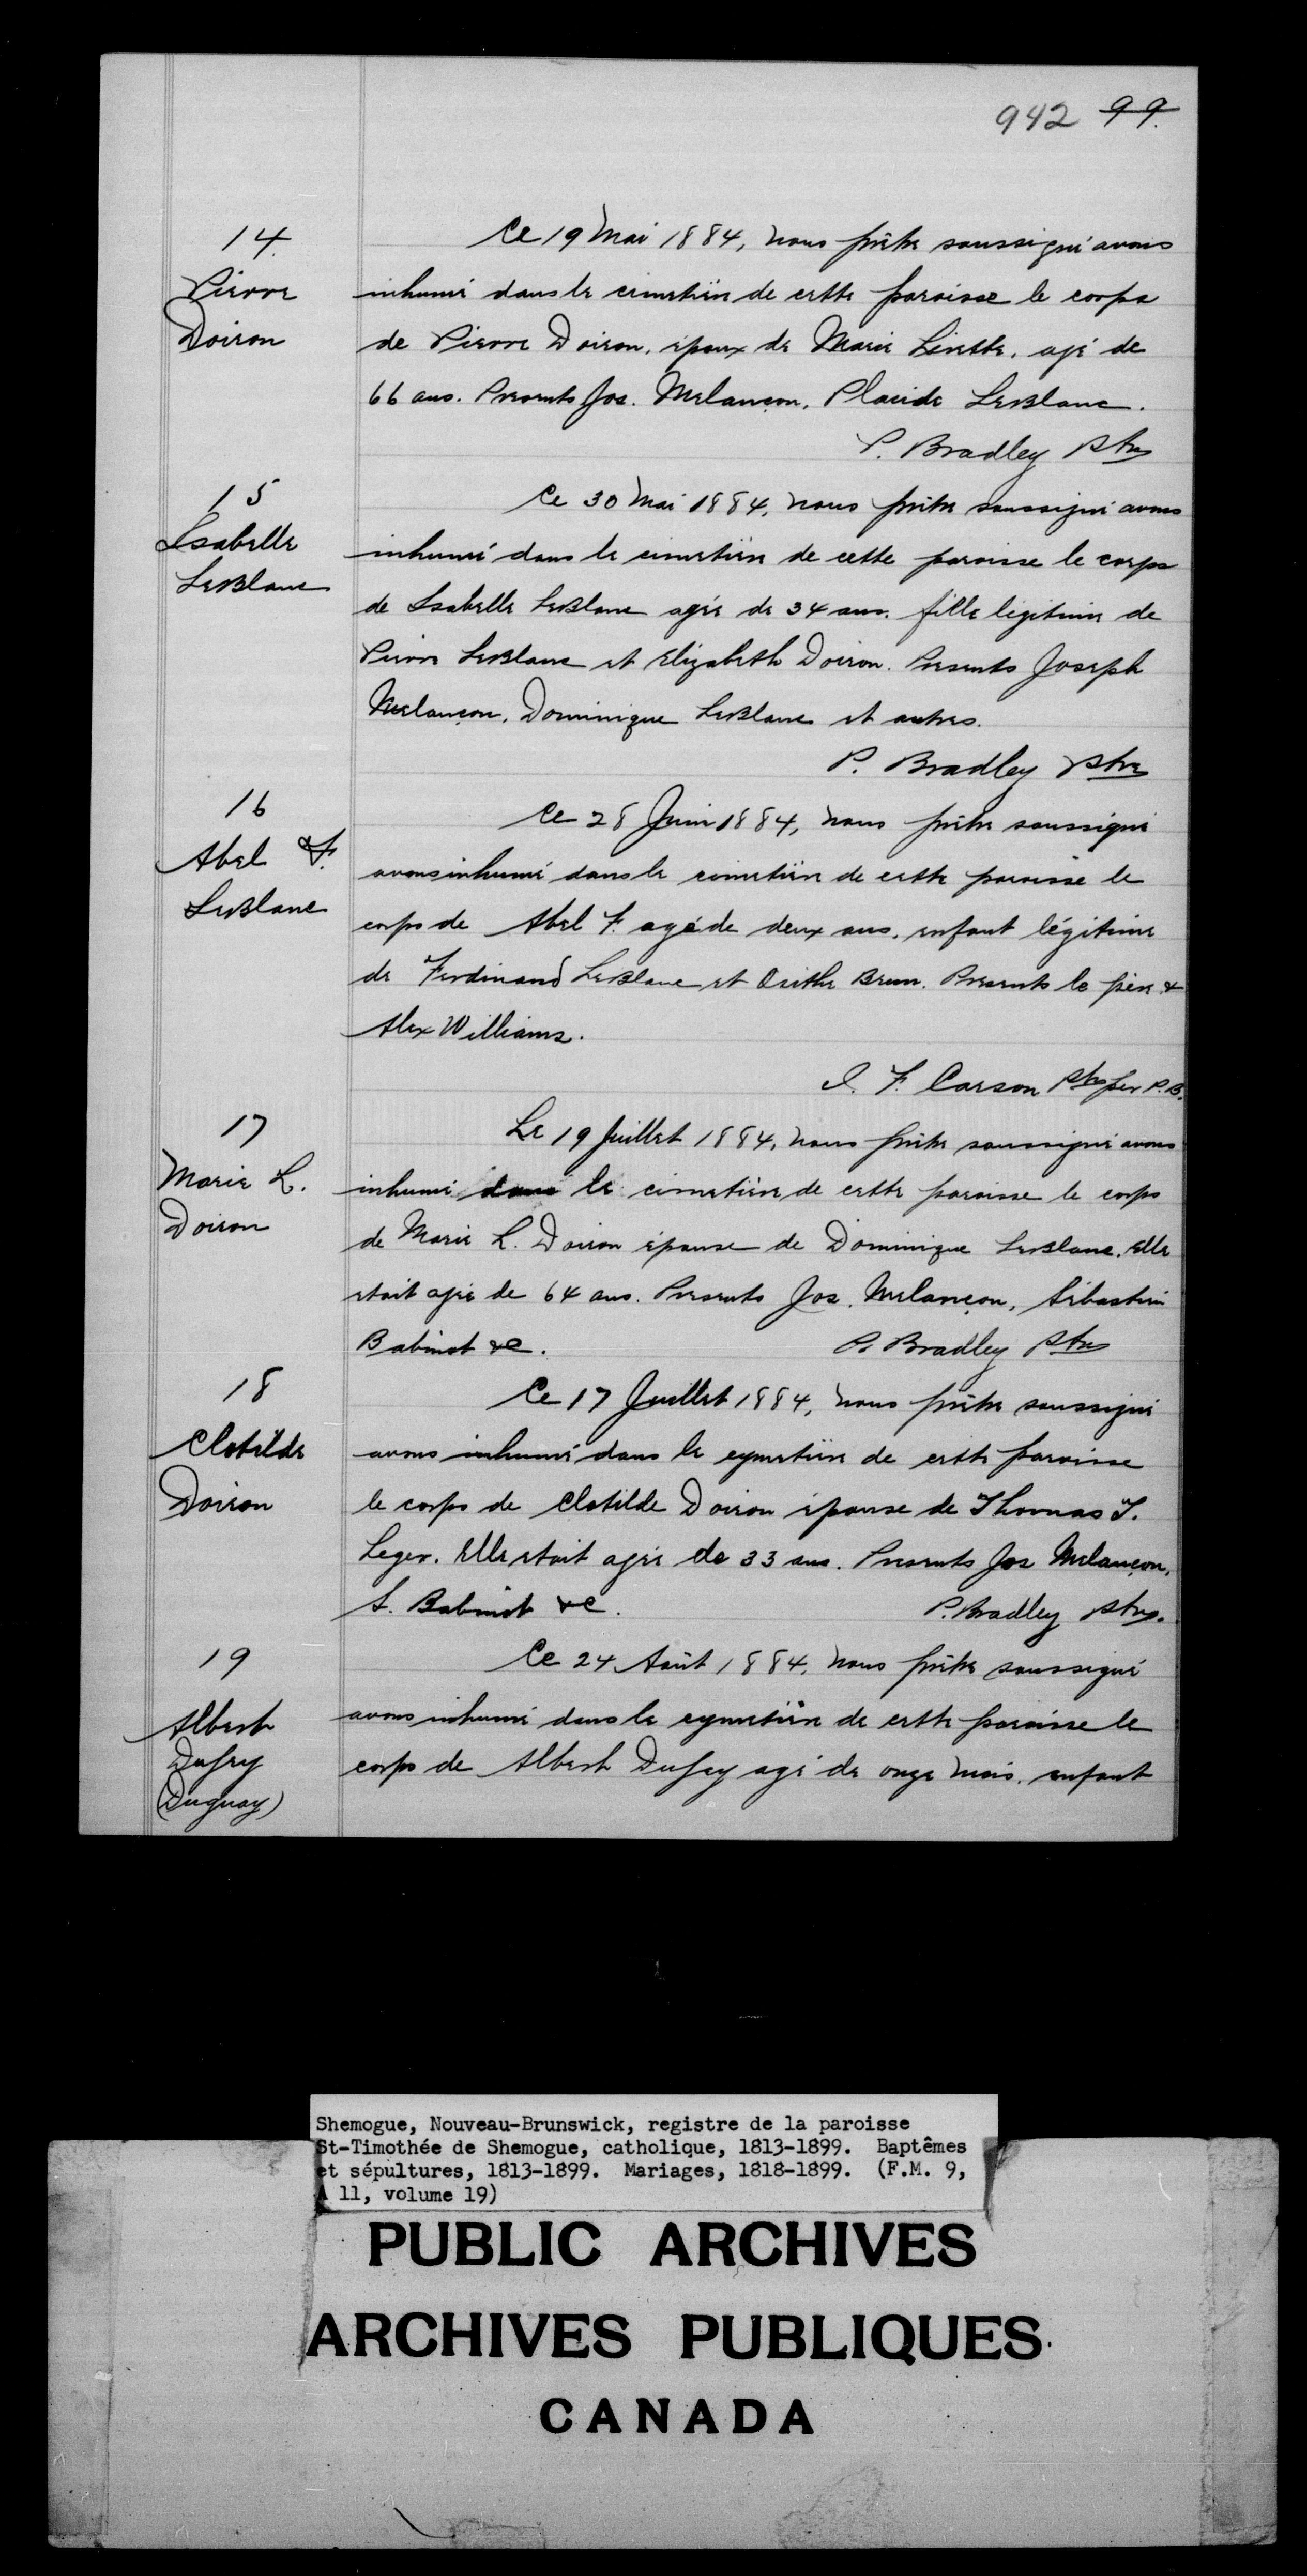 942 99.
14.
Pierre
Doiron
Ce 19 Mai 1884, nous prêtre soussigné avons
inhumé dans le cimetière de cette paroisse le corps
de Pierre Doiron, époux de Marie agé de
66 ans. Presents Jos. Melançon, Placide LeBlanc.
P. Bradley Ptre
15
Isabelle
LeBlanc
Ce 30 Mai 1884, nous prêtre soussigné avons
inhumé dans le cimetière de cette paroisse le corps
de Isabelle LeBlanc agée de 34 ans. fille légitime de
Pierre LeBlanc et Elizabeth Doiron. Presents Joseph
Melançon, Dominique LeBlanc et autres.
P. Bradley Ptre
16
Abel F.
LeBlanc
Ce 28 Juin 1884, nous prêtre soussigné
avons inhumé dans le cimetière de cette paroisse le
corps de Abel F. agé de deux ans, enfant légitime
de Ferdinand LeBlanc et Osithe Brun. Presents le père &
Alex Williams.
J. F. Carson Ptre per P.B.
17
Marie L.
Doiron
Le 19 Juillet 1884, nous prêtre soussigné avons
inhumé dans le cimetière de cette paroisse le corps
de Marie L. Doiron épouse de Dominique LeBlanc. Elle
etait agée de 64 ans. Presents Jos. Melançon, Sébastien
Babinot &c. P. Bradley Ptre
18
Clotilde
Doiron
Ce 17 Juillet 1884, nous prêtre soussigné
avons inhumé dans le cymetière de cette paroisse
le corps de Clotilde Doiron épouse de Thomas T.
Leger. Elle etait agée de 33 ans. Presents Jos Melançon,
S. Babinot &c. P. Bradley Ptre.
19
Albert
Dufey
(Duguay)
Ce 24 Août 1884, nous prêtre soussigné
avons inhumé dans le cymetière de cette paroisse le
corps de Albert Dufey agé de onze mois, enfant
Shemogue, Nouveau-Brunswick, registre de la paroisse
St-Timothée de Shemogue, catholique, 1813-1899. Baptêmes
et sépultures, 1813-1899. Mariages, 1818-1899. (F.M. 9,
A 11, volume 19)
PUBLIC ARCHIVES
ARCHIVES PUBLIQUES
CANADA